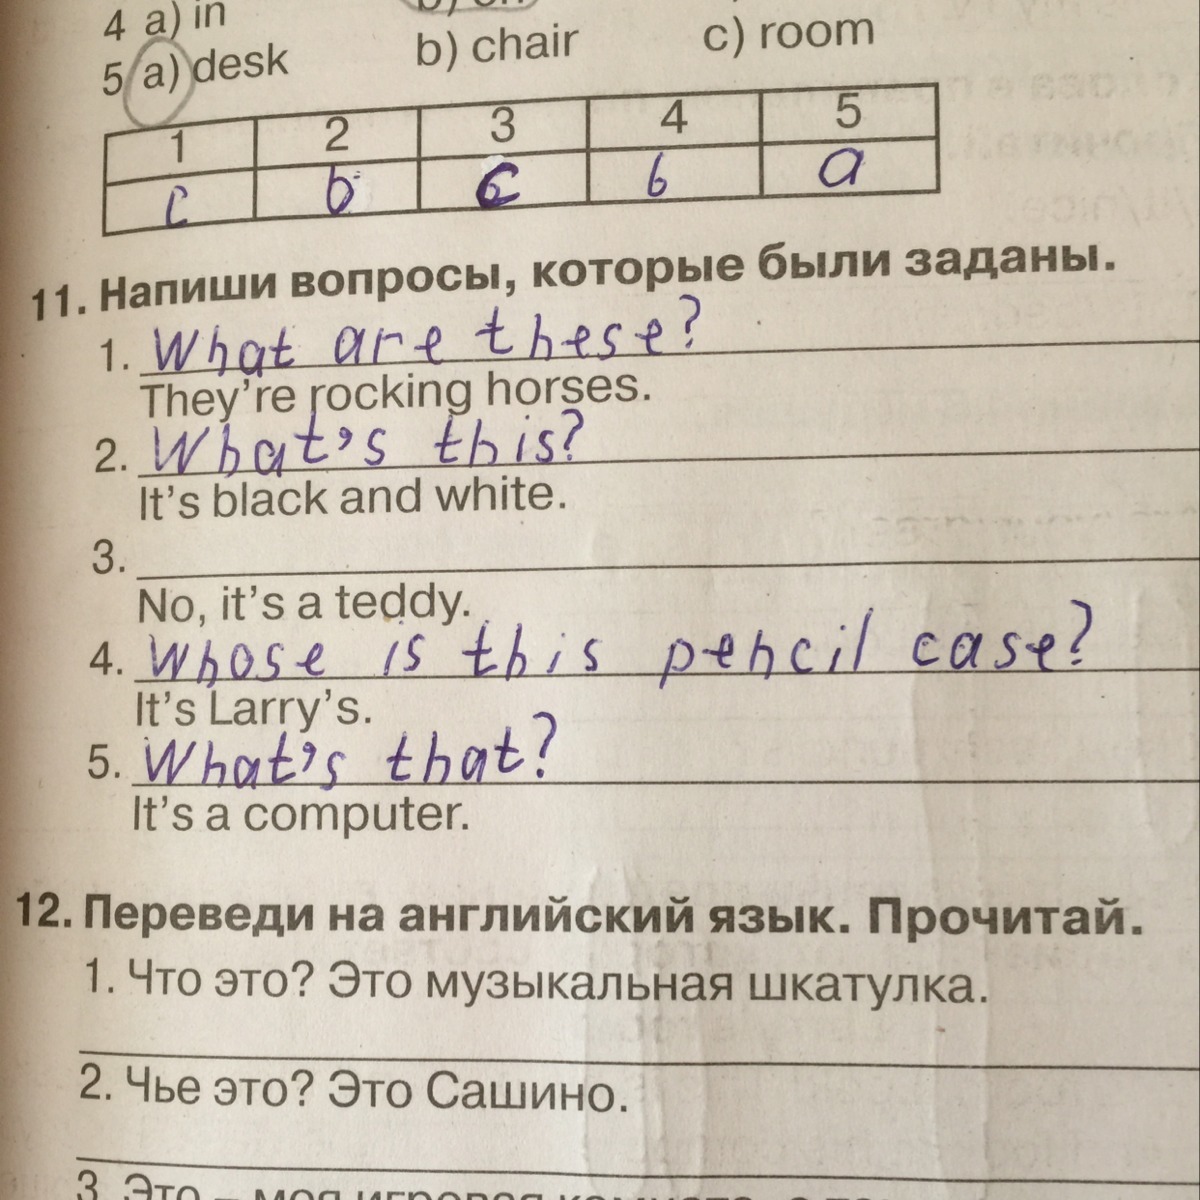 4 a) in b) on
5 a) desk b) chair c) room
1 2 3 4 5
c b c b a
11. Напиши вопросы, которые были заданы.
1. What are these?
They're rocking horses.
2. What's this?
It's black and white.
3.
No, it's a teddy.
4. Whose is this pencil case?
It's Larry's.
5. What's that?
It's a computer.
12. Переведи на английский язык. Прочитай.
1. Что это? Это музыкальная шкатулка.
2. Чье это? Это Сашино.
3. Это – моя игровая